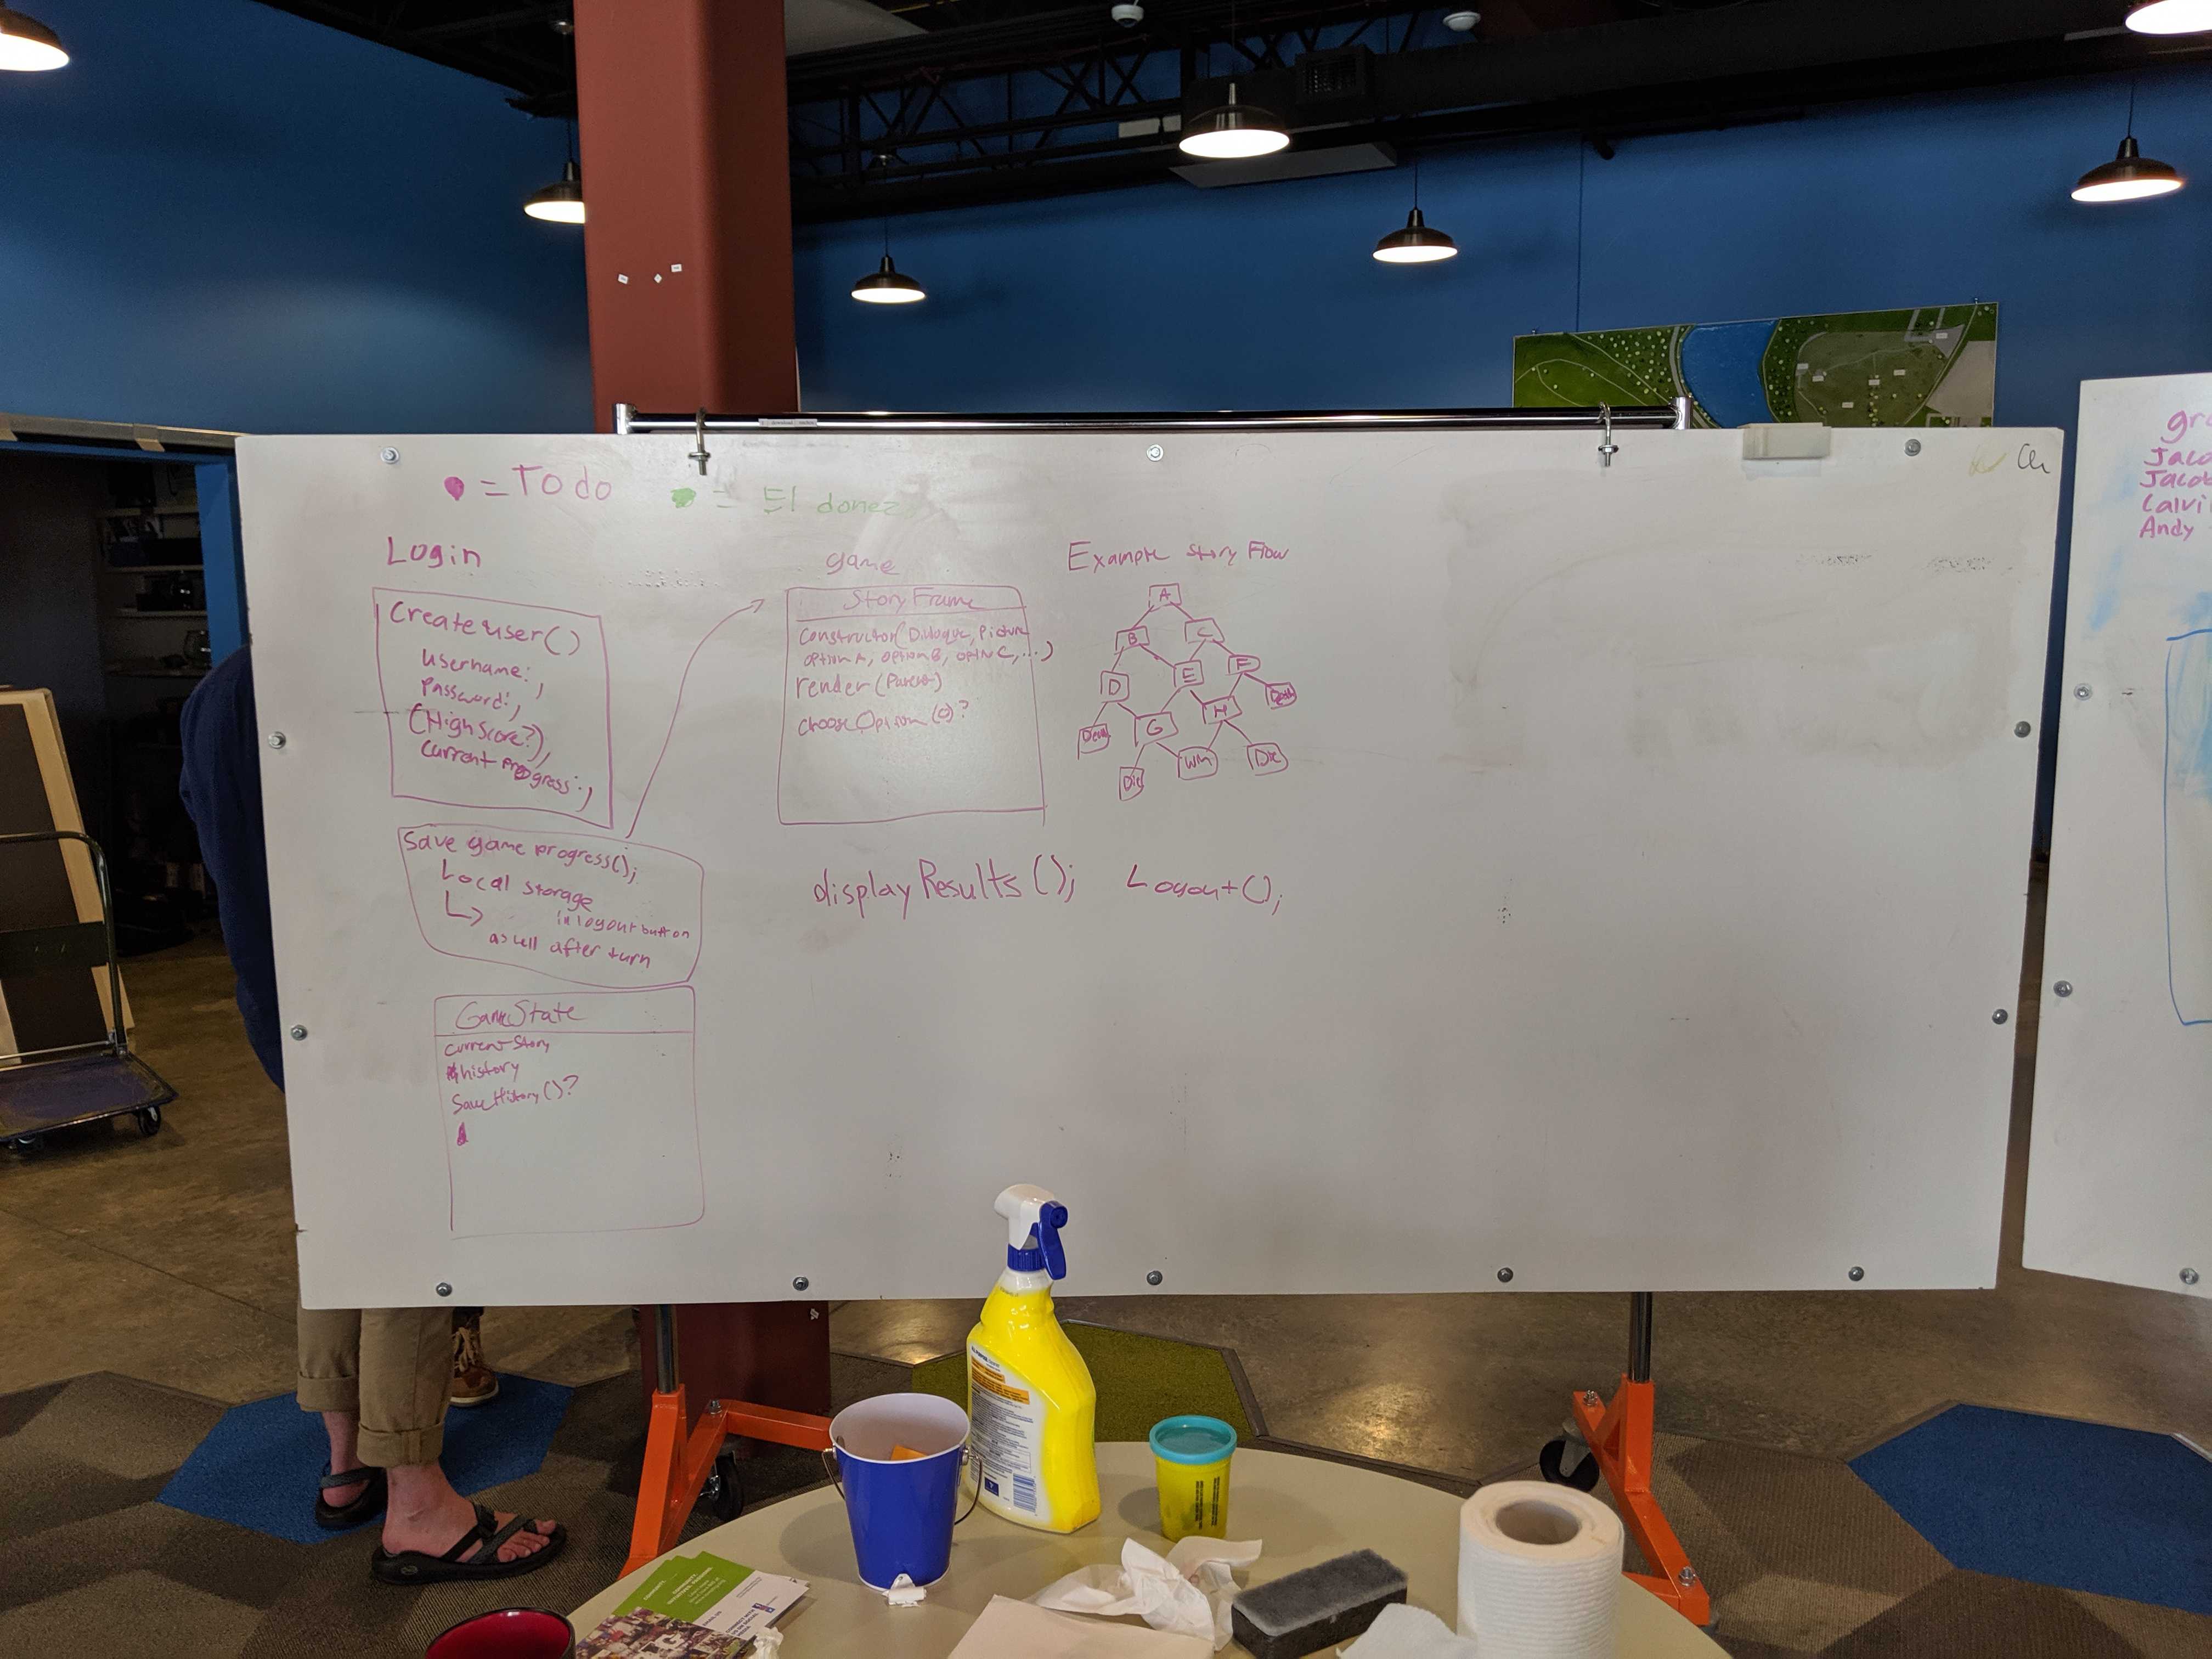 = To do
= donez
Login
Createuser()
username: ,
Password: ,
(High Score?),
current progress: ,
Save game progress();
Local storage
in logout button
as well after turn
GameState
currentStory
history
SaveHistory()?
game
Story Frame
constructor(Dialogue, Picture
option A, option B, optn C, ...)
render(Parent)
choose Option(o)?
Example Story Flow
A
B C
D E F
G H Death
Death
Win Die
Die
displayResults(); Logout();
Jacob
Andy